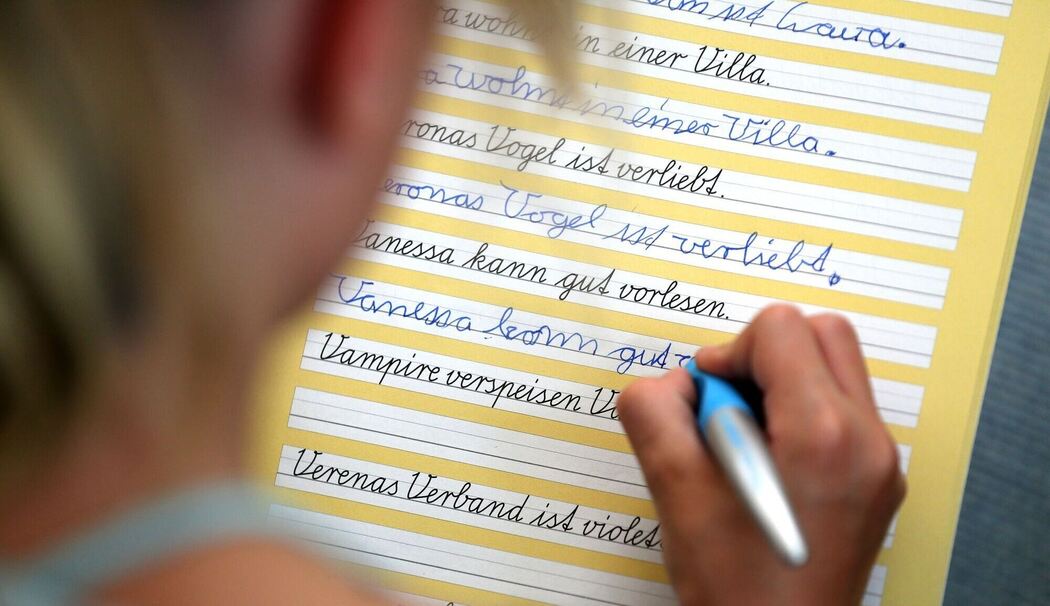 ist Laura.
wohnt in einer Villa.
wohnt in einer Villa.
ronas Vogel ist verliebt.
eronas Vogel ist verliebt.
Vanessa kann gut vorlesen.
Vanessa kann gut
Vampire verspeisen
Verenas Verband ist violett